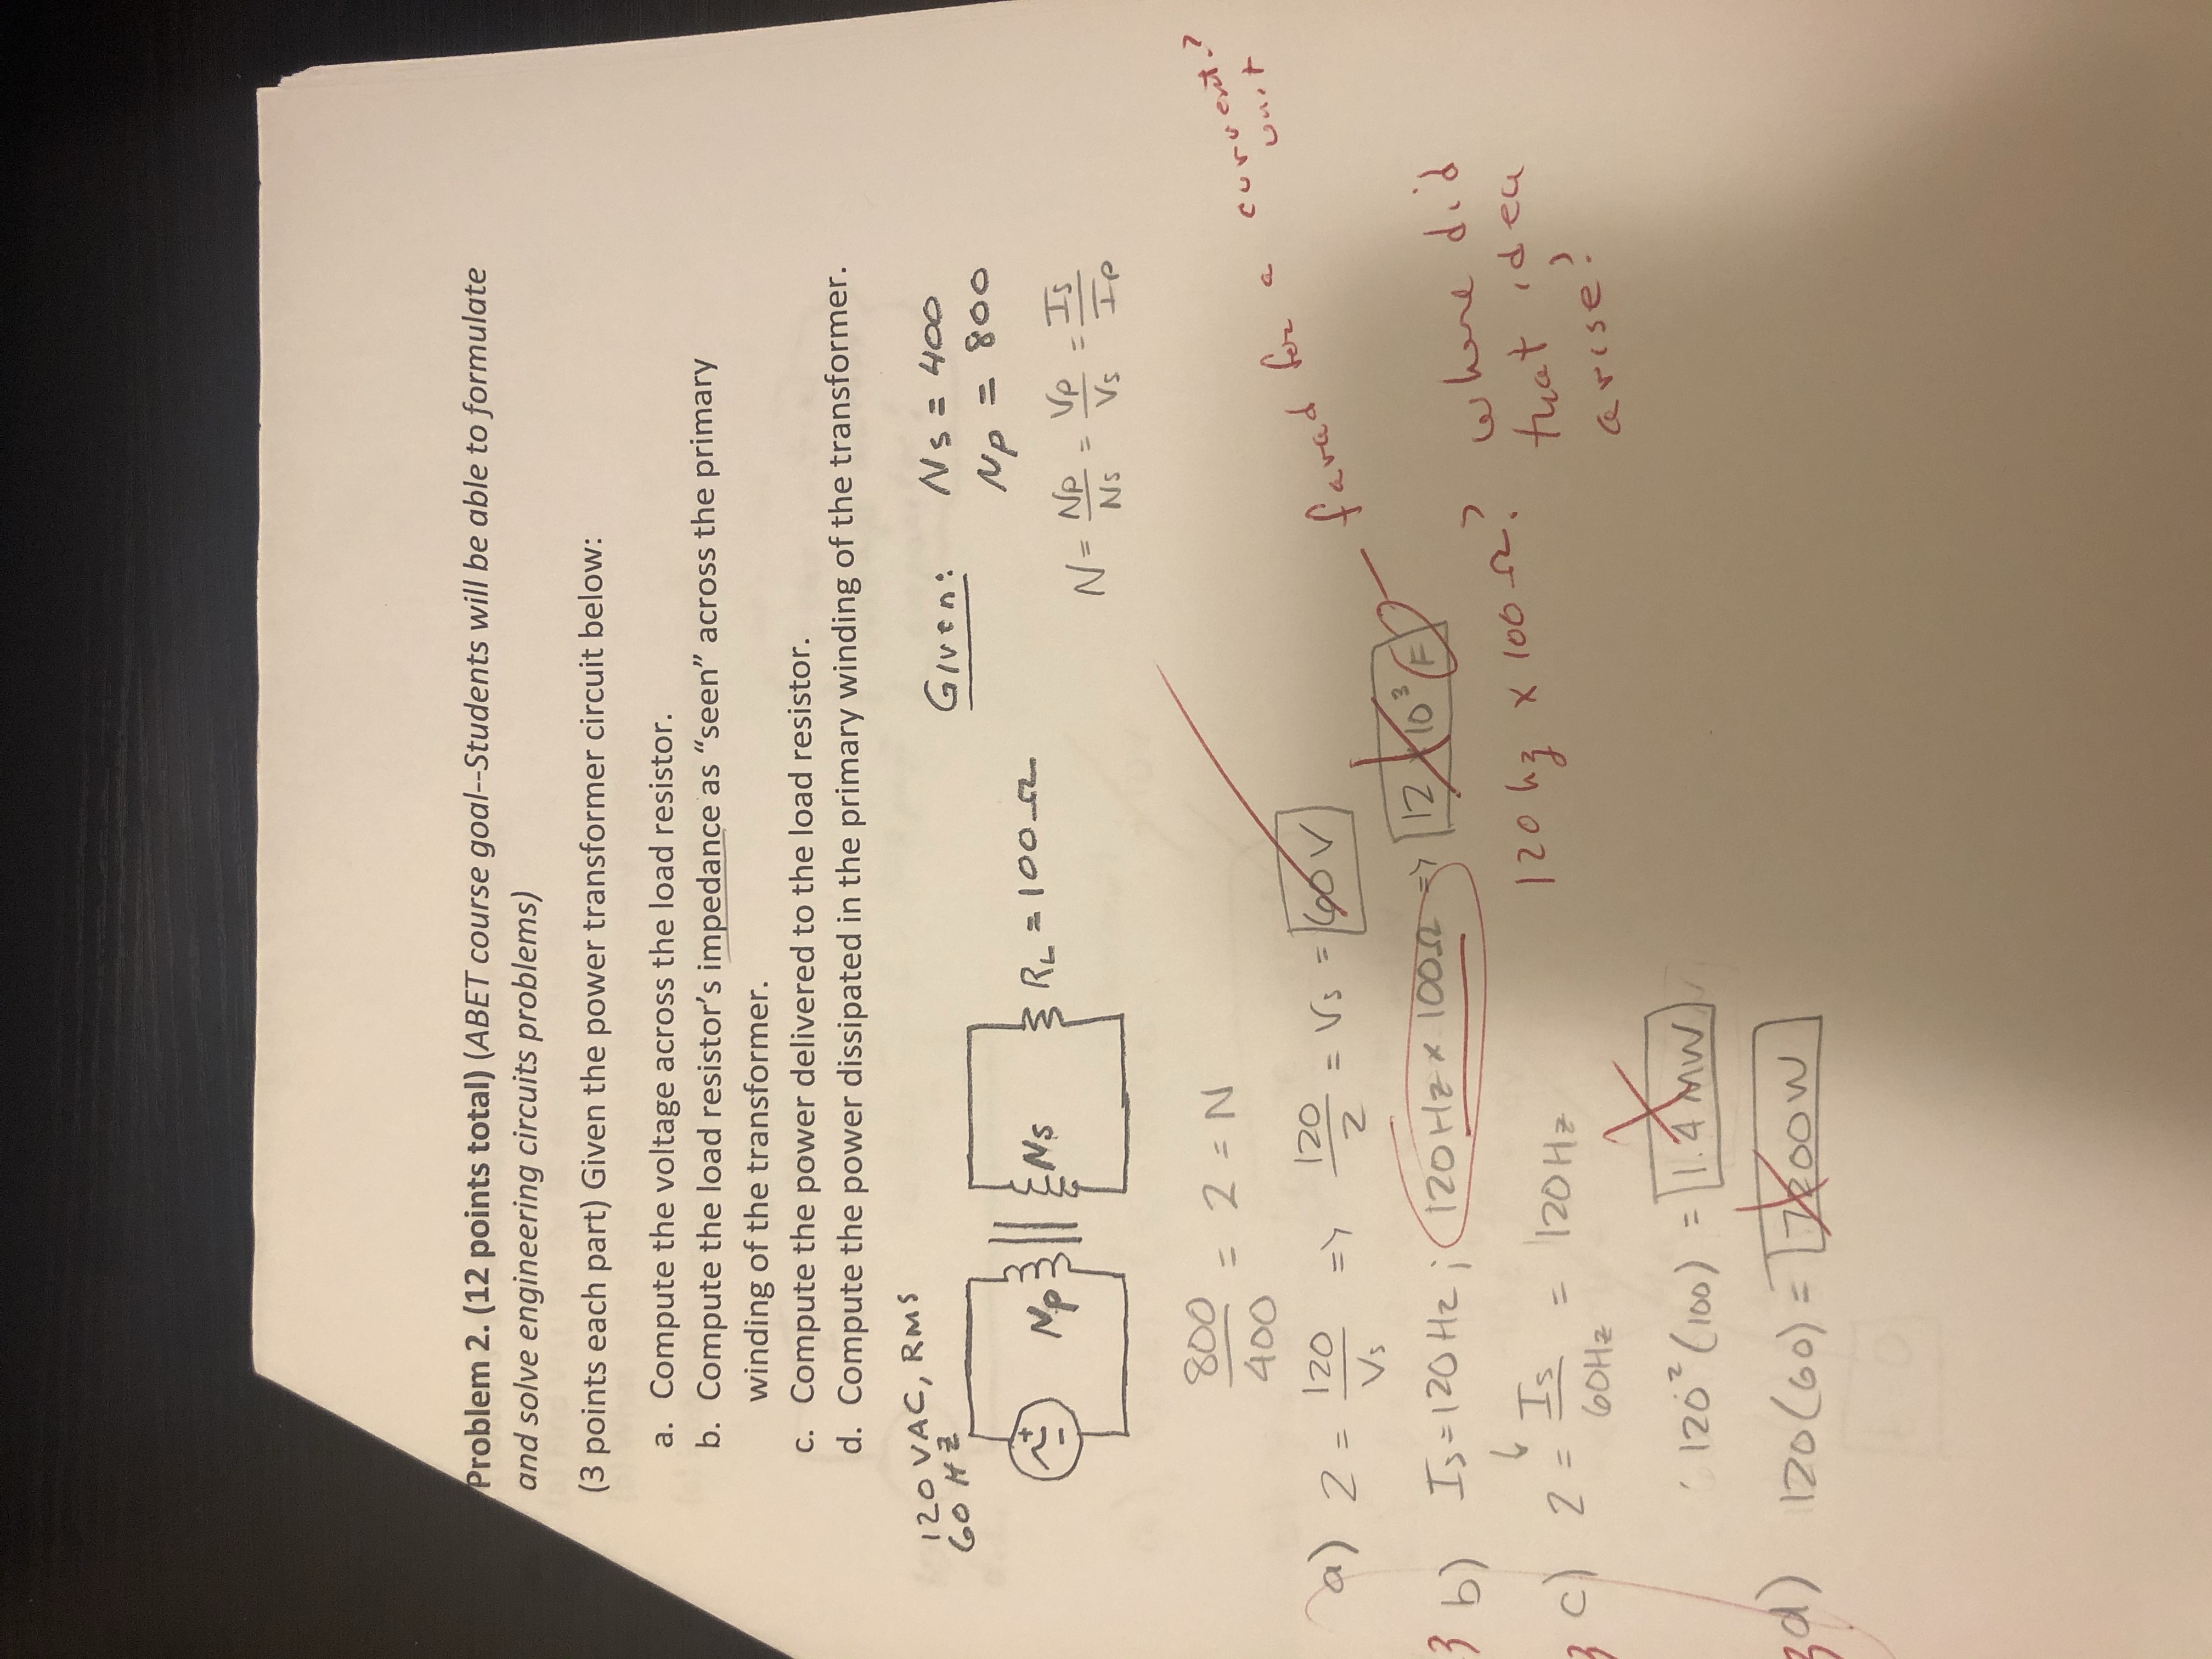 Problem 2. (12 points total) (ABET course goal--Students will be able to formulate
and solve engineering circuits problems)
(3 points each part) Given the power transformer circuit below:
a. Compute the voltage across the load resistor.
b. Compute the load resistor's impedance as “seen” across the primary
winding of the transformer.
c. Compute the power delivered to the load resistor.
d. Compute the power dissipated in the primary winding of the transformer.
120 VAC, RMS
60 HZ
Given: Ns = 400
Np = 800
Np Ns RL = 100Ω
N = Np/Ns = Vp/Vs = Is/Ip
800/400 = 2 = N
a) 2 = 120/Vs => 120/2 = Vs = 60V
farad for a current?
unit
3 b) Is = 120Hz; 120Hz x 100Ω => 12 x 10³ F
120 hz x 100 Ω? where did
that idea
arise?
3 c) 2 = Is/60Hz = 120Hz
120²(100) = 1.4 MW
3 d) 120(60) = 7200W